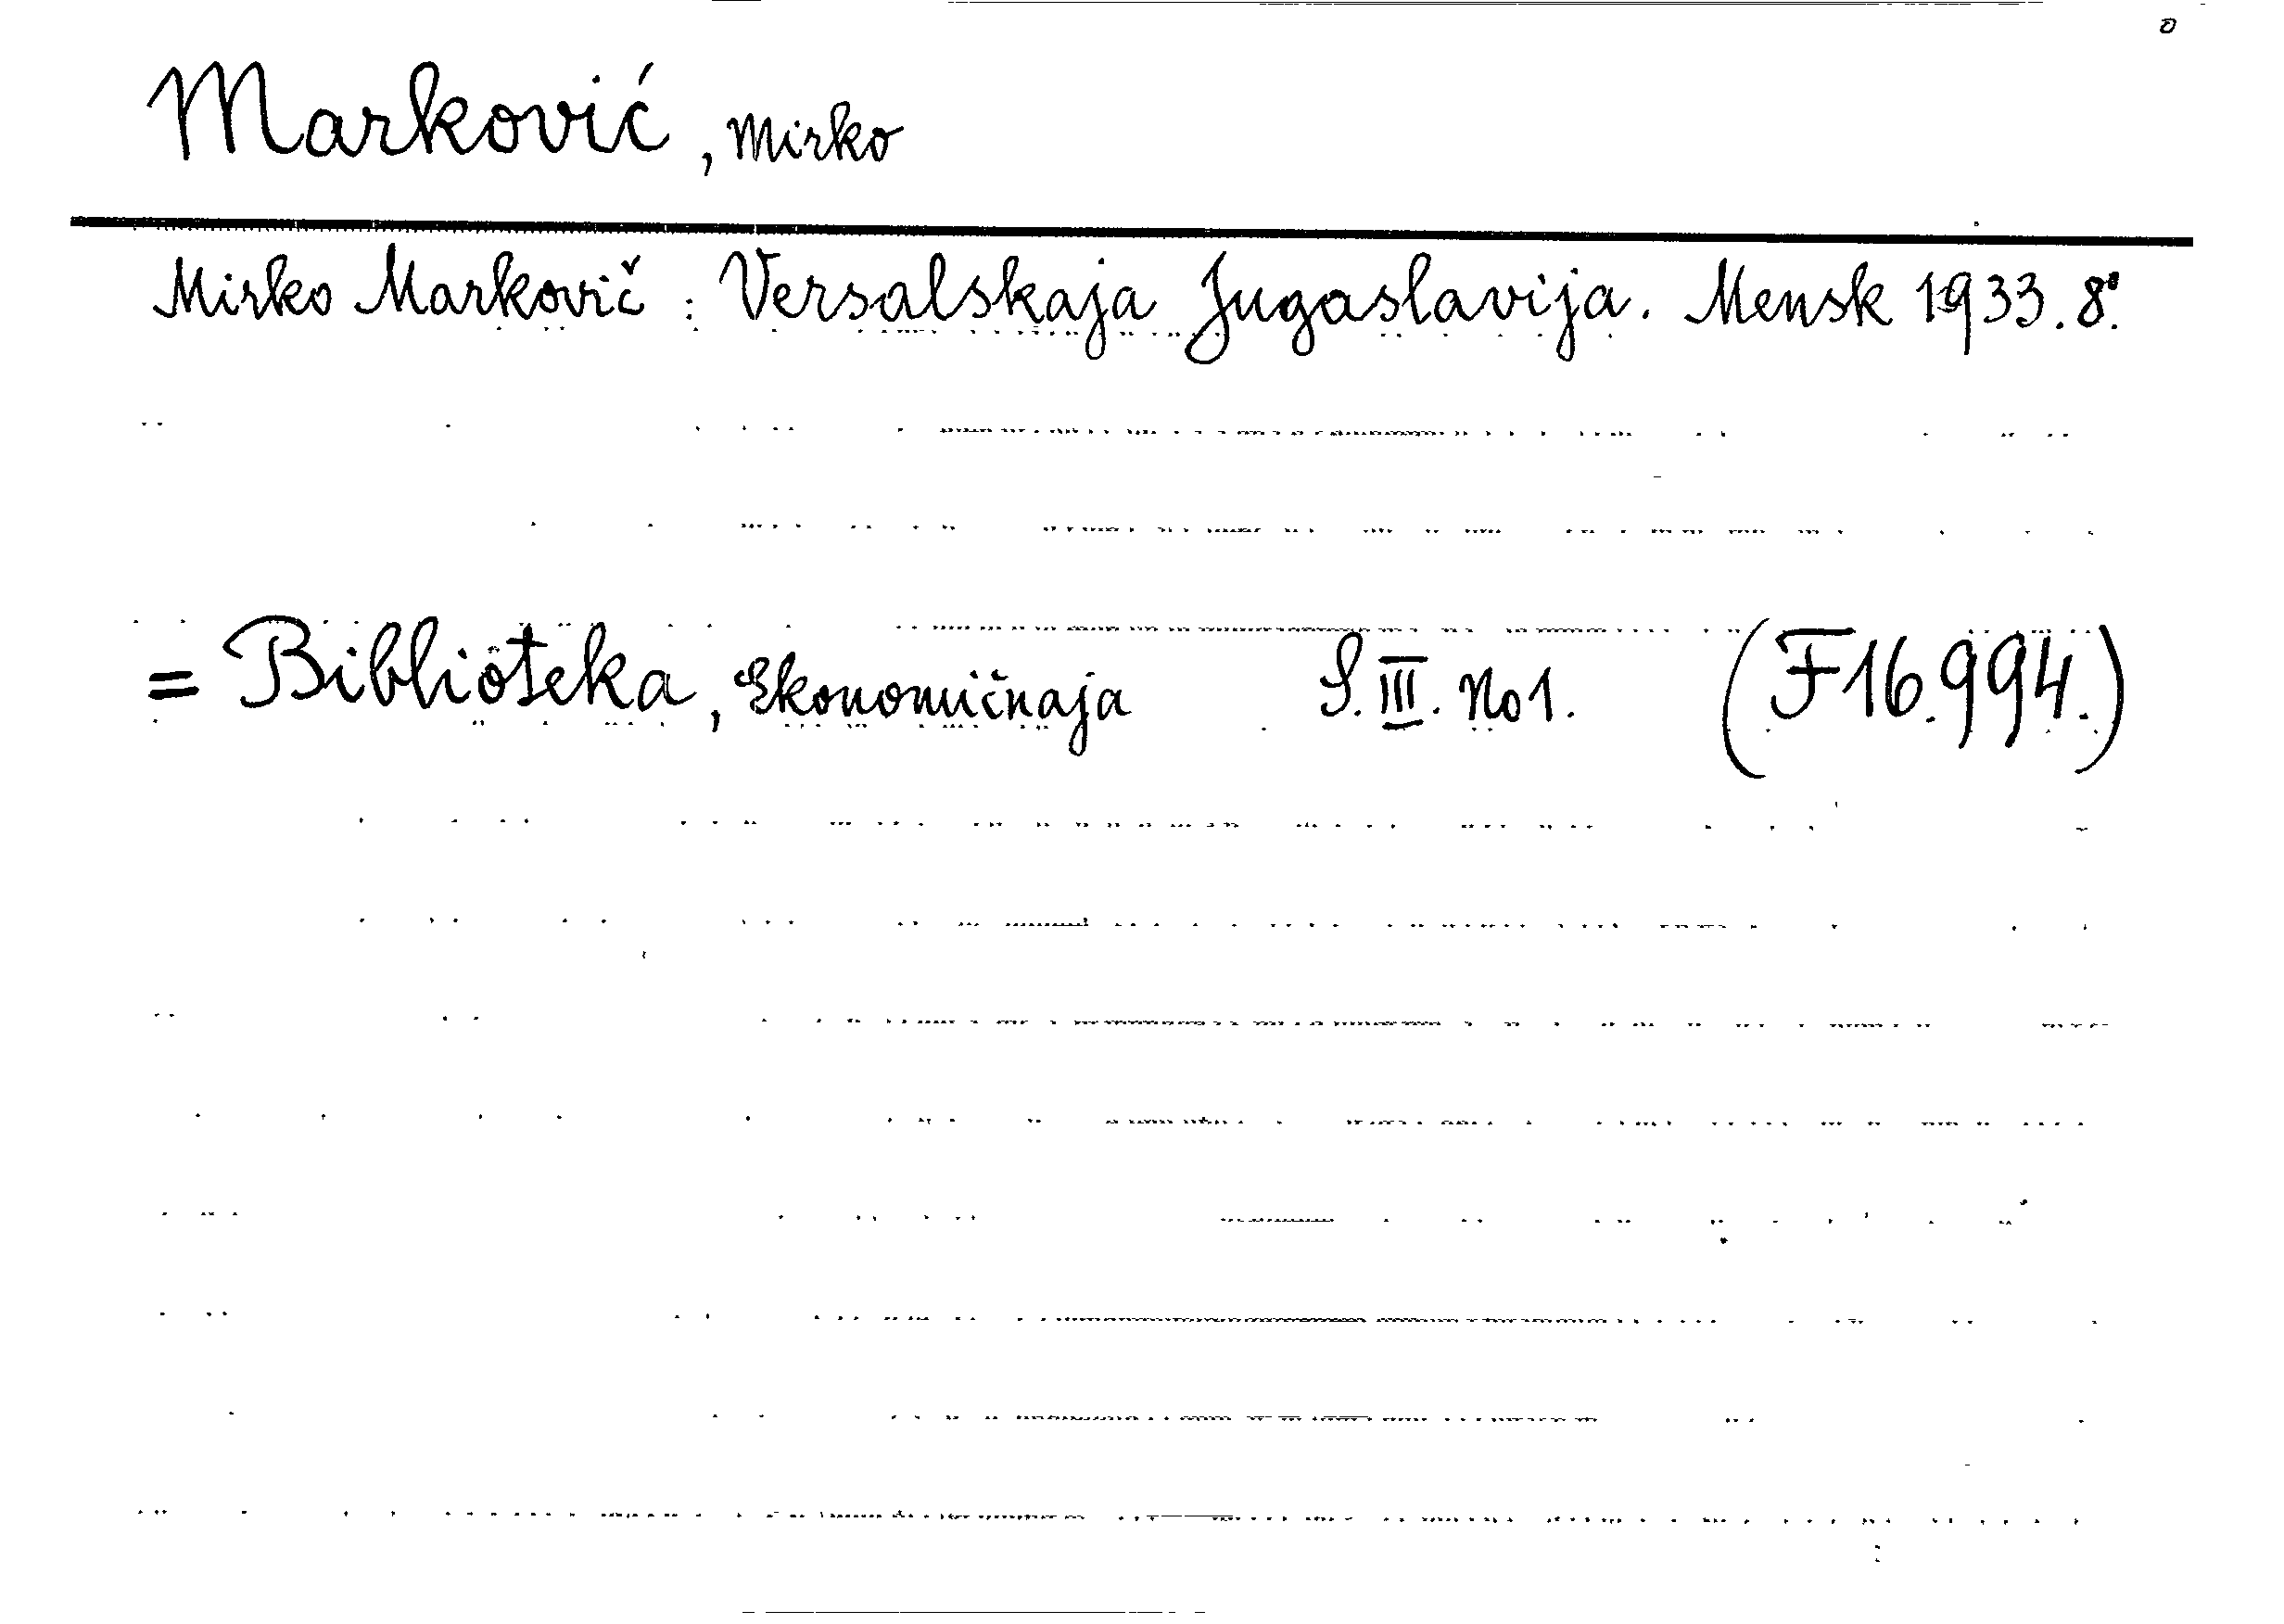 o
Marković, Mirko
Mirko Markovič: Versalskaja Jugaslavija. Mensk 1933. 8°.
= Biblioteka, Ekonomičnaja S. III. No 1. (F16.994.)